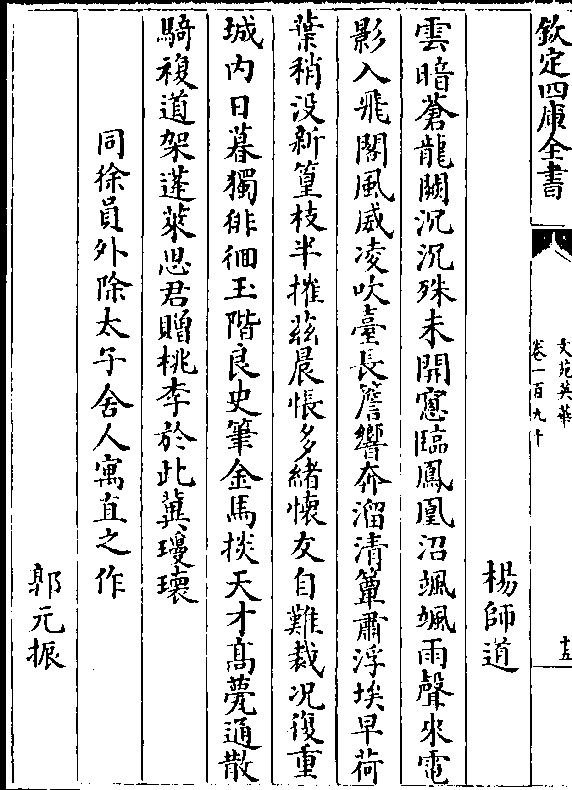 欽定四庫全書
文苑英華
卷一百九十
十五
楊師道
雲暗蒼龍闕沉沉殊未開窻臨鳳凰沼颯颯雨聲來電
影入飛閣風威凌吹臺長簷響奔溜清簟肅浮埃早荷
葉稍没新篁枝半摧茲晨悵多緒懷友自難裁况復重
城内日暮獨徘徊玉階良史筆金馬掞天才髙甍通散
騎複道架蓬萊思君贈桃李於此冀瓊瓌
同徐員外除太子舍人寓直之作
郭元振